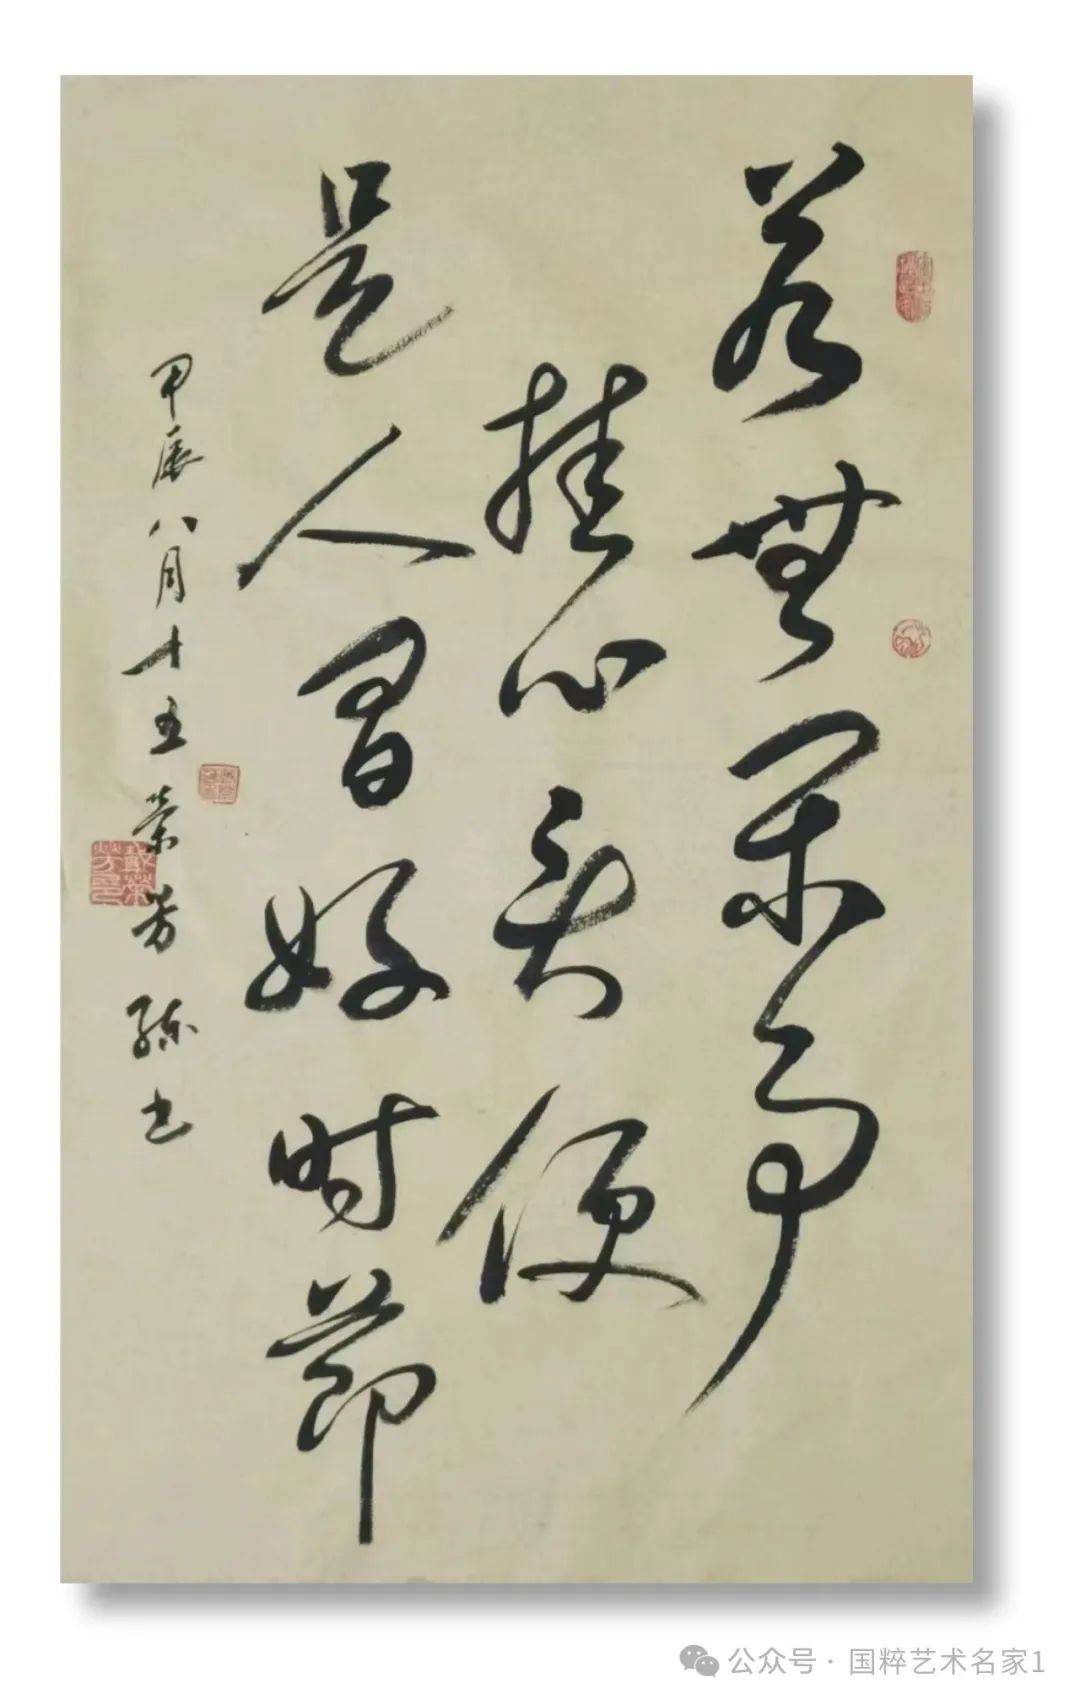 若無闲事
挂心头便
是人间好时节
甲辰八月十五荣芳孙书
戴荣芳印
公众号 · 国粹艺术名家1